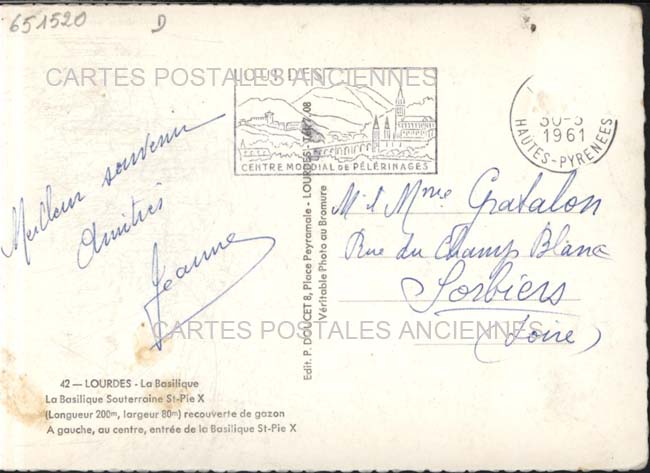 651520
D
CARTES POSTALES ANCIENNES
LOURDES
CENTRE MONDIAL DE PÈLERINAGES
30-5
1961
HAUTES-PYRENEES
Meilleur souvenir
Amitiés
Jeanne
M et Mme Gratalon
Rue du Champ Blanc
Sorbiers
(Loire)
Edit. P. DOUCET 8, Place Peyramale - LOURDES
Véritable Photo au Bromure
CARTES POSTALES ANCIENNES
42 — LOURDES - La Basilique
La Basilique Souterraine St-Pie X
(Longueur 200m, largeur 80m) recouverte de gazon
A gauche, au centre, entrée de la Basilique St-Pie X